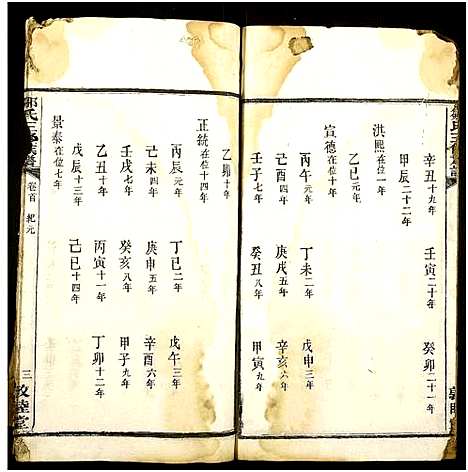 辛丑十九年 壬寅二十年 癸卯二十一年
甲辰二十二年
洪熙在位一年
乙巳元年
宣德在位十年
丙午元年 丁未二年 戊申三年
己酉四年 庚戌五年 辛亥六年
壬子七年 癸丑八年 甲寅九年
乙卯十年
正統在位十四年
丙辰元年 丁巳二年 戊午三年
己未四年 庚申五年 辛酉六年
壬戌七年 癸亥八年 甲子九年
乙丑十年 丙寅十一年 丁卯十二年
戊辰十三年 己巳十四年
景泰在位七年
鄒氏三修族譜 卷首 紀元 三 敦睦堂